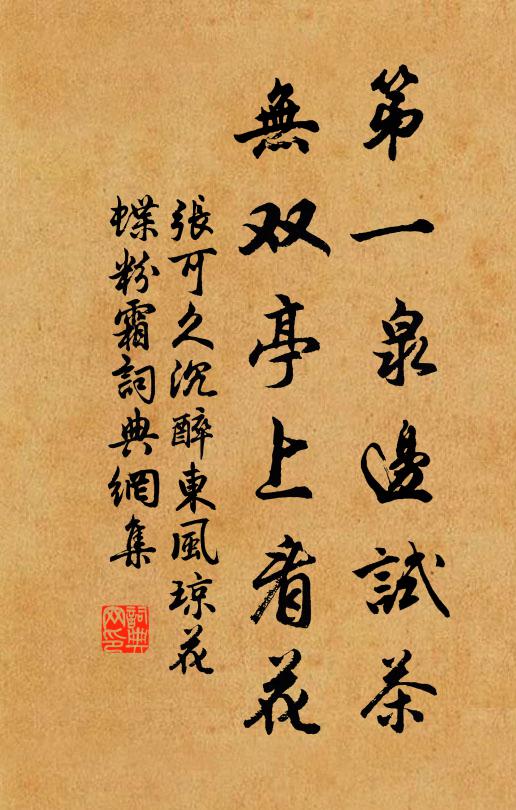 第一泉邊試茶
無双亭上看花
張可久沉醉東風琼花
蝶粉霜詞典網集
詞典
网印